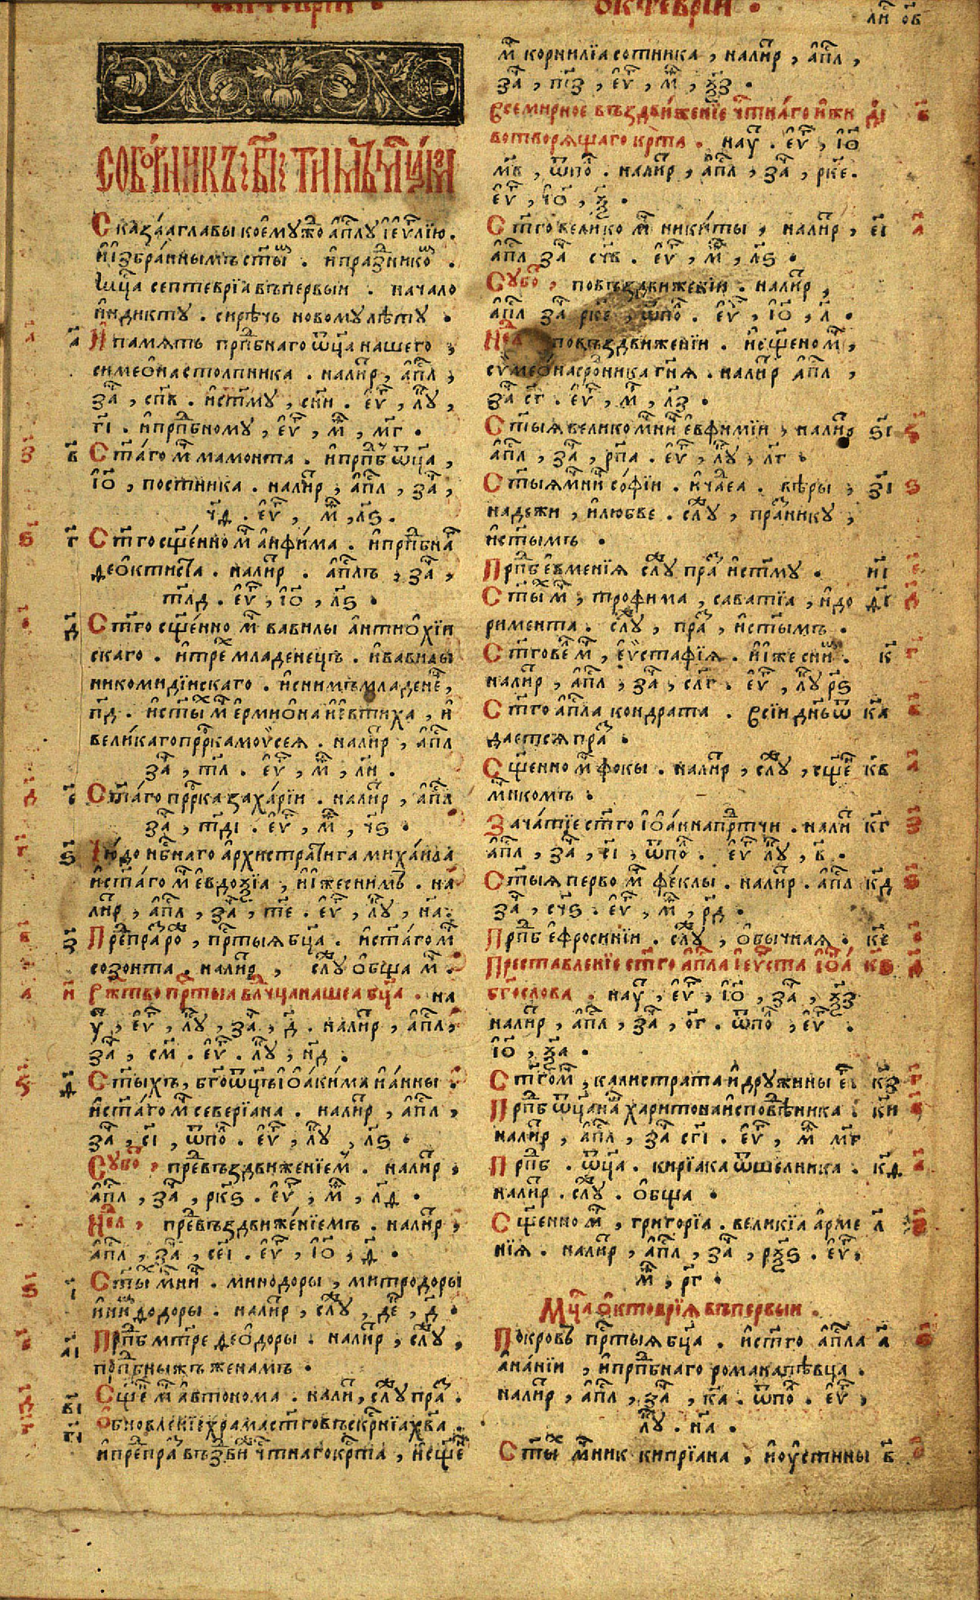 ОКТЕВРІИ .
соборникъ, вı, тимъ мцемъ
Сказаа главы коемуждо апⷭ҇лу і еѵⷢ҇лію .
и избраннымъ ст҃ы . и празⷣнико .
Мцⷭ҇а септеврїа въ первыи . начало
индикту . сирѣчь новому лѣту .
а҃ И память прпⷣбнаго ѿц҃а нашего ,
симеѡна столпника . на лиⷮр , апⷭ҇л ,
за , спв . и ст҃му , снı . еѵⷢ҇ , лꙋ ,
г҃ı . и прпⷣбному , еѵⷢ҇ , м , м҃г .
в҃ Ст҃аго мⷱ҇ мамонта . и прпⷣб ѿц҃а ,
іѡ , постника . на лиⷮр , апⷭ҇л , за ,
ч҃д . еѵⷢ҇ , м , л҃ѕ .
г҃ Ст҃го сщ҃енно мⷱ҇ анфима . и прпⷣбна
ѳеоктиста . на лиⷮр . апⷭ҇лъ , за ,
тлд . еѵⷢ҇ , іѡ , л҃ѕ .
д҃ Ст҃го сщ҃енно мⷱ҇ вавилы антиохїи
скаго . и трⷯе младенецъ . и вавилы
никомидїискаго . и снимъ младене ,
п҃д . и ст҃ыⷯ мⷱ҇ ермиѡна и евтиха , и
великаго прⷪ҇рка моѵсея . на лиⷮр , апⷭ҇л
за , т҃л . еѵⷢ҇ , м , л҃и .
е҃ Ст҃аго прⷪ҇рка захарїи . на лиⷮр , апⷭ҇л
за , т҃дı . еѵⷢ҇ , м , ч҃ѕ .
ѕ҃ Чюдо нбⷭ҇наго архистратига михаила
и ст҃аго мⷱ҇ евдоѯїа , и иже снимъ . на
лиⷮр , апⷭ҇л , за , т҃е . еѵⷢ҇ , лꙋ , н҃а .
з҃ Преⷣпраⷥ роⷤ , прⷱ҇тыя бцⷣа . и ст҃аго мⷱ҇
созонта . на лиⷮр , слꙋ обща мⷱ҇ .
и҃ Ржⷭ҇тво прⷱ҇тыа влⷣчца нашеа бцⷣа . на
ꙋ , еѵⷢ҇ , лꙋ , за , д҃ . на лиⷮр , апⷭ҇л ,
за , с҃м . еѵⷢ҇ . лꙋ , н҃д .
ѳ҃ Ст҃ыхъ , бг҃оѿц҃ъ іѡакима и анны .
и ст҃аго мⷱ҇ северїана . на лиⷮр , апⷭ҇л ,
за , с҃ı , ѿпо . еѵⷢ҇ , лꙋ , л҃ѕ .
Субоⷮ , преⷣ въздвижениемъ . на лиⷮр ,
апⷭ҇л , за , ркѕ . еѵⷢ҇ , м , л҃ѳ .
Неⷣл , преⷣ въздвиженїемъ . на лиⷮр ,
апⷭ҇л , за , сеı . еѵⷢ҇ , іѡ , ѳ҃ .
ı҃ Ст҃ыⷯ мⷱ҇ниⷰ . минодоры , митродоры
и нимфодоры . на лиⷮр , слꙋ , де , д҃ .
а҃ı Прпⷣб мт҃ре ѳеодоры . на лиⷮр , слꙋ ,
прпⷣбныхъ женамъ .
в҃ı Сщ҃е мⷱ҇ автонома . на ли , слꙋ праⷥ .
г҃ı Обновленїе храма ст҃го въскрⷭ҇нїа хрⷭ҇ва .
и преⷣпраⷥ въздви чтⷭ҇наго крⷭ҇та , и сщ҃е
мⷱ҇ корнилїа сотника , на лиⷮр , апⷭ҇л ,
за , пз , еѵⷢ҇ , м , ѯ҃з .
д҃ı Всемирное въздвиженїе чтⷭ҇наго и жи
вотворящаго крⷭ҇та . на ꙋ . еѵⷢ҇ , іѡ
м҃в , ѿпо . на лиⷮр , апⷭ҇л , за , рке .
еѵⷢ҇ , іѡ , ѯ҃ .
е҃ı Ст҃го велико мⷱ҇ никиты , на лиⷮр ,
апⷭ҇л за сч҃в . еѵⷢ҇ , м , л҃ѕ .
Субоⷮ , по въздвижении . на лиⷮр ,
апⷭ҇л за рке , ѿпо . еѵⷢ҇ , іѡ , л҃ .
Неⷣл по въздвижении . и сщ҃еном ,
сумеона сродника гнⷭ҇я . на лиⷮр апⷭ҇л ,
за с҃г . еѵⷢ҇ , м , л҃з .
ѕ҃ı Ст҃ыя велико мⷱ҇ни евфимїи , на лиⷮр
апⷭ҇л , за , рпа . еѵⷢ҇ , лꙋ , л҃г .
з҃ı Ст҃ыя мⷱ҇ни софїи . и чаⷣ еа . вѣры ,
надежи , и любве . слꙋ , праⷥнику ,
и ст҃ымъ .
и҃ı Прпⷣб евменїя слꙋ праⷥ и ст҃му .
ѳ҃ı Ст҃ыⷯ мⷱ҇ , трофима , саватїа , и до
римента . слꙋ , праⷥ , и ст҃ымъ .
к҃ Ст҃го веⷧ мⷱ҇ , еѵстафїя . и иже сниⷨ .
на лиⷮр , апⷭ҇л , за , слг . еѵⷢ҇ , лꙋ р҃ѕ
к҃а Ст҃го апⷭ҇ла кондрата . Въсїи днь ѿ
дается праⷥ .
к҃в Сщ҃енно мⷱ҇ фокы . на лиⷮр , слꙋ , сщ҃е
мⷱ҇никомъ .
к҃г Зачатїе ст҃го іѡанна прⷣтчи . на ли
апⷭ҇л , за , с҃ı , ѿпо . еѵⷢ҇ лꙋ , в҃ .
к҃д Ст҃ыя перво мⷱ҇ феклы . на лиⷮр . апⷭ҇л
за , сч҃ѕ . еѵⷢ҇ , м , р҃д .
к҃е Прпⷣб ефросинїи . слꙋ , обычная .
к҃ѕ Преставленїе ст҃го апⷭ҇ла і еѵⷢ҇ста іѡа
бг҃ослова . на ꙋ , еѵⷢ҇ , іѡ , за , ѯ҃з
на лиⷮр , апⷭ҇л , за , о҃г . ѿпо , еѵⷢ҇ .
іѡ , ѯ҃а .
к҃з Ст҃го мⷱ҇ , калистрата и дружины е .
к҃и Прпⷣб ѿц҃а на харитона исповѣⷣника .
на лиⷮр , апⷭ҇л , за сгı . еѵⷢ҇ , м м҃г
к҃ѳ Прпⷣб . ѿц҃а . кирїака ѿшелника .
на лиⷮр . слꙋ . обща .
л҃ Сщ҃енно мⷱ҇ , григорїа . великїа арме
нїя . на лиⷮр , апⷭ҇л , за , рѯѕ . еѵⷢ҇ ,
м , р҃г .
Мцⷭ҇а октоврїя въ первыи .
а҃ Покровъ прⷱ҇тыя бцⷣа . и ст҃го апⷭ҇ла
ананїи , и прпⷣбнаго романа пѣвца .
на лиⷮр , апⷭ҇л , за , к҃а . ѿпо . еѵⷢ҇ ,
лꙋ . н҃а .
в҃ Ст҃ыⷯ мⷱ҇ник кипрїана , и оустины